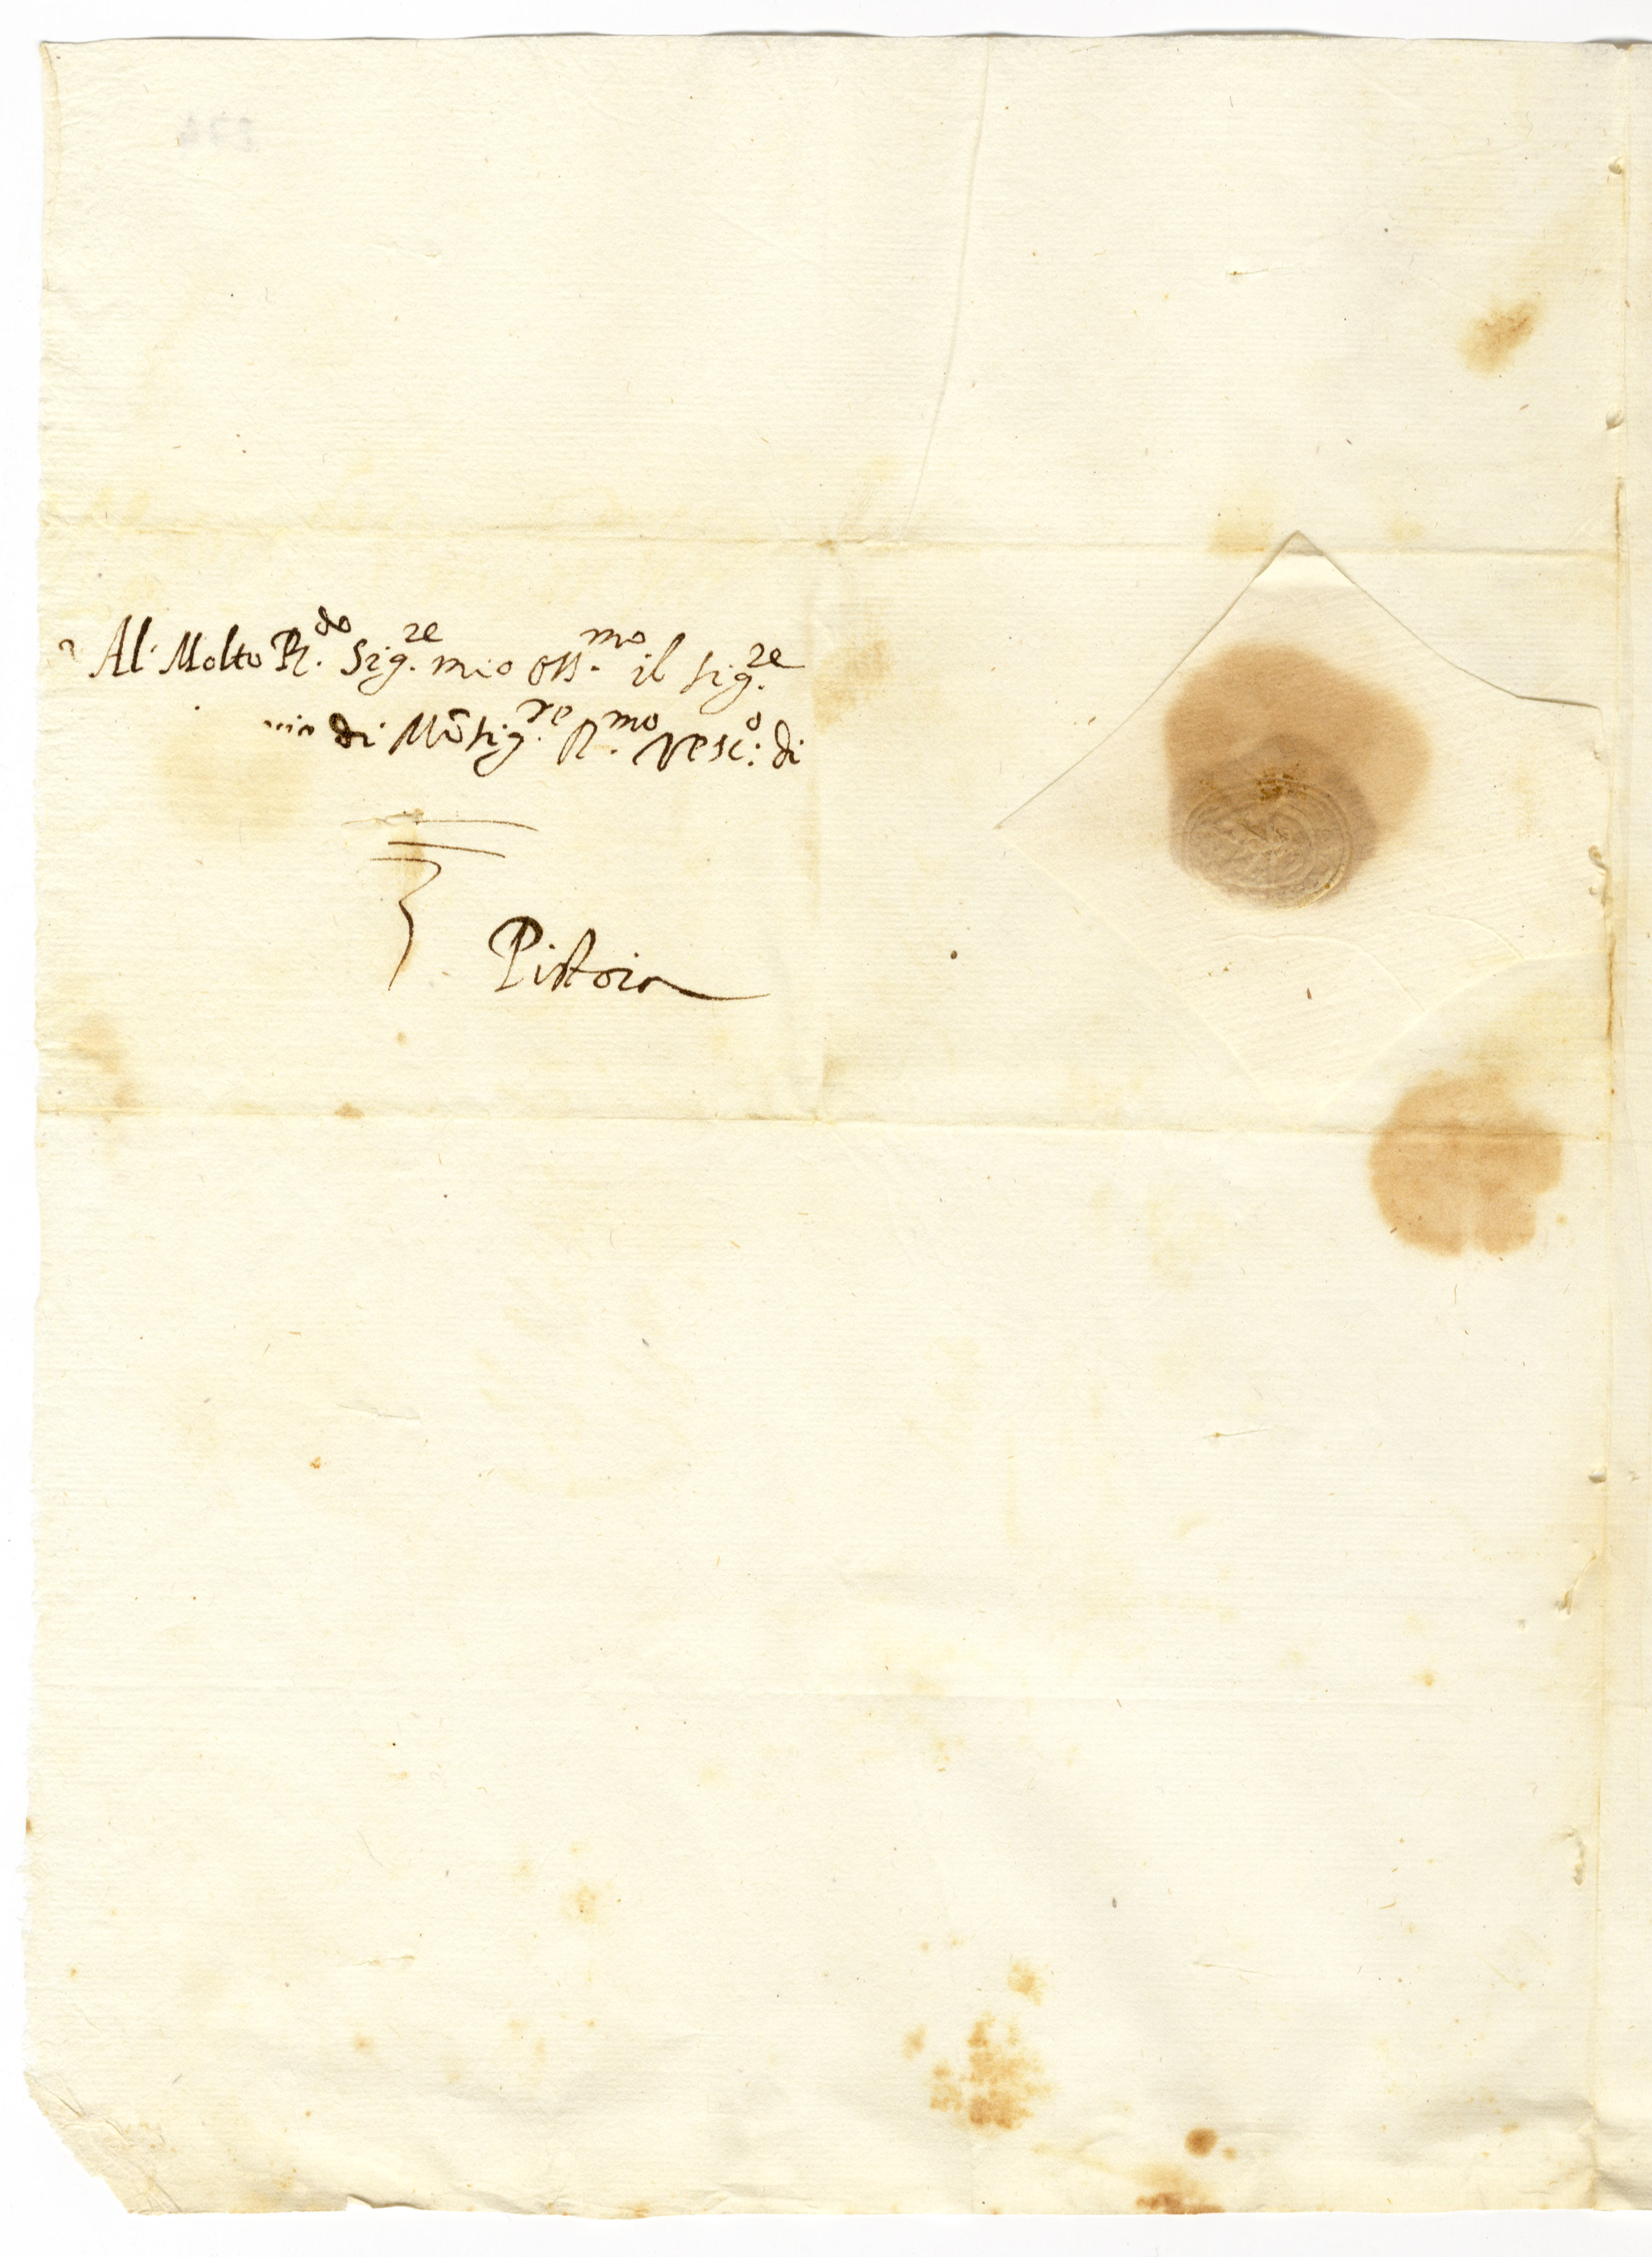 Al Molto R.do Sig.re mio oss.mo il sig.re
di Mōsig.re R.mo Vesc.o: di
Pistoia